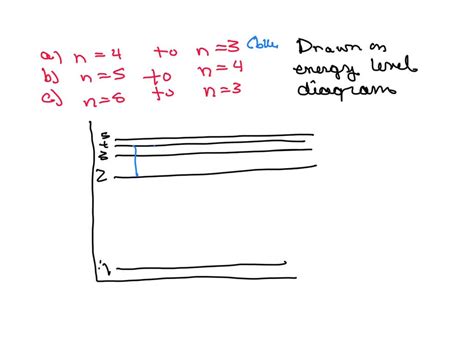 a) n=4 to n=3 (blue
b) n=5 to n=4
c) n=6 to n=3
Drawn on
energy level
diagram
5
4
3
2
1